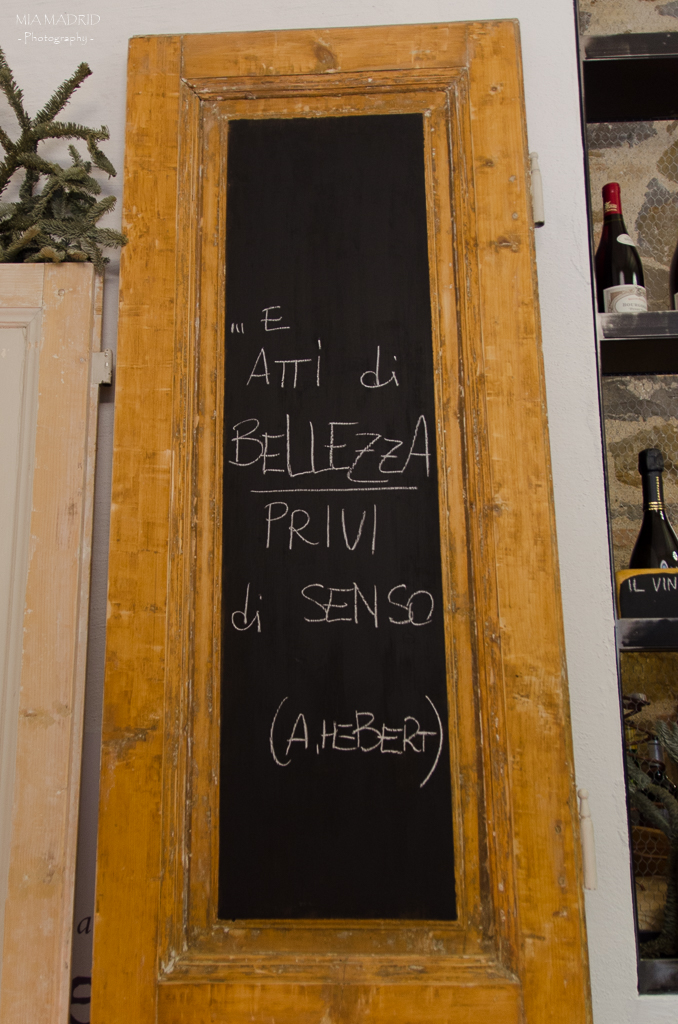 MIA MADRID
- Photography -
... E
ATTi di
BELLEZZA
PRIVI
di SENSO
(A. HEBERT)
IL VIN
a